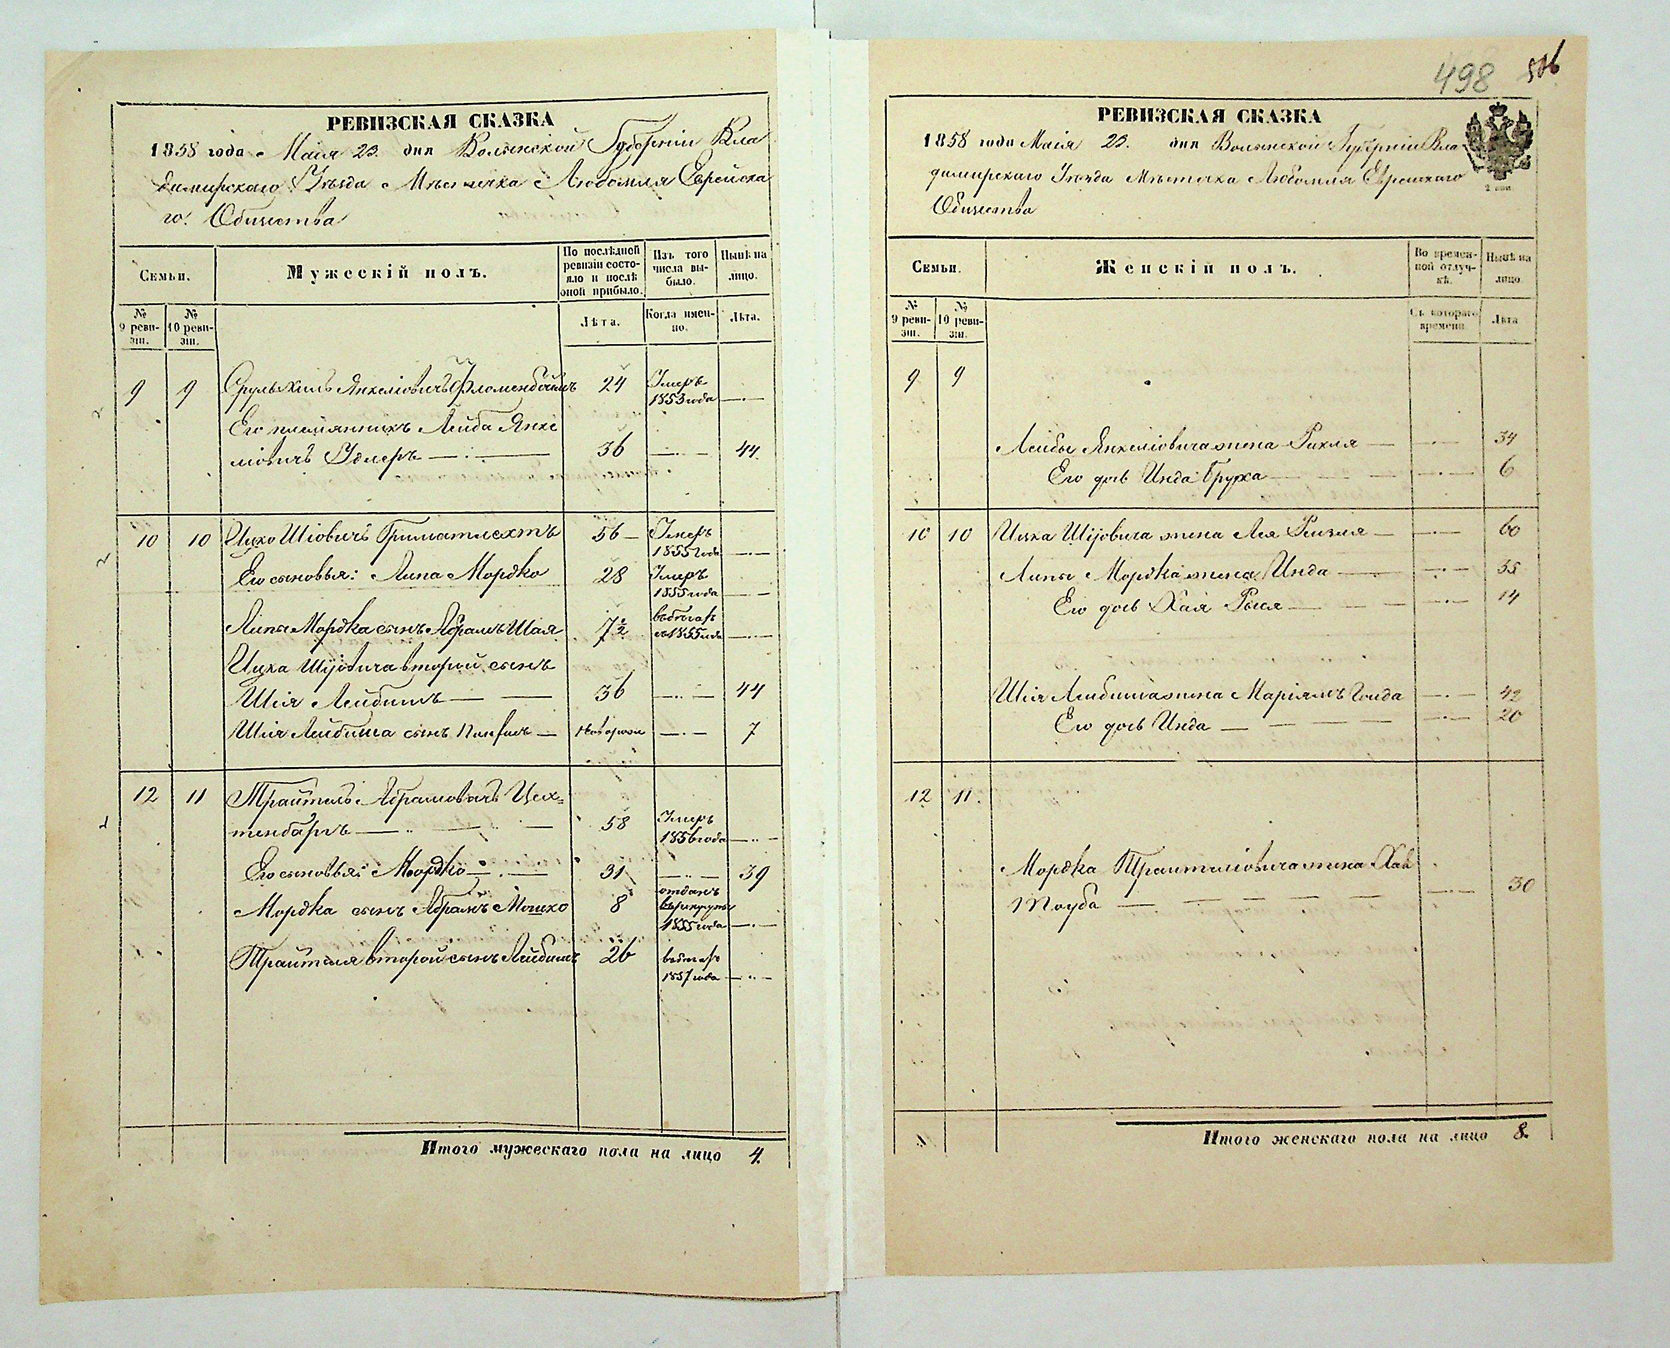 РЕВИЗСКАЯ СКАЗКА
1858 года Маія 23. дня Волынской Губерніи Вла
димирскаго Уѣзда Мѣстечка Любомля Еврейска
го Общества
Семьи.
Мужескій полъ.
По послѣдней ревизіи состояло и послѣ оной прибыло.
Изъ того числа выбыло.
Нынѣ на лицо.
№ 9 ревизіи.
№ 10 ревизіи.
Лѣта.
Когда именно.
Лѣта.
9 9 Янкеліовичъ 24 Умеръ 1853 года
Его племянникъ Лейба Янке
ліовичъ Удлеръ 36 44.
10 10 Ицко Шіовичъ 56 Умеръ 1855 года
Его сыновья: Липа Мордко 28 Умеръ 1855 года
Липы Мордка сынъ Абрамъ Шая 7½ въ бѣгахъ съ 1855 года
Ицка Шіовича второй сынъ
Шія Лейбишъ 36 44
Шія Лейбиша сынъ новорож 7
12 11 Трайтель Абрамовичъ Цех-
тенбаргъ 58 Умеръ 1856 года
Его сыновья: Мордко 31 39
Мордка сынъ Абрамъ Мошко 8 отданъ въ рекруты 1855 года
Трайтеля второй сынъ Лейбишъ 26 въ бѣгахъ 1857 года
Итого мужескаго пола на лицо 4.
498 506
РЕВИЗСКАЯ СКАЗКА
1858 года Маія 23. дня Волынской Губерніи Вла
димирскаго Уѣзда Мѣстечка Любомля Еврейскаго
Общества
Семьи.
Женскій полъ.
Во временной отлучкѣ.
Нынѣ на лицо.
№ 9 ревизіи.
№ 10 ревизіи.
Съ котораго времени.
Лѣта
9 9
Лейбы Янкеліовича жена Рихля 34
Его дочь Инда Бруха 6
10 10 Ицка Шіовича жена Лея Рейзля 60
Липы Мордка жена Инда 35
Его дочь Хая Рыся 14
Шія Лейбиша жена Маріямъ Голда 42
Его дочь Инда 20
12 11.
Мордка Трайтеліовича жена Хая
Тауба 30
Итого женскаго пола на лицо 8.